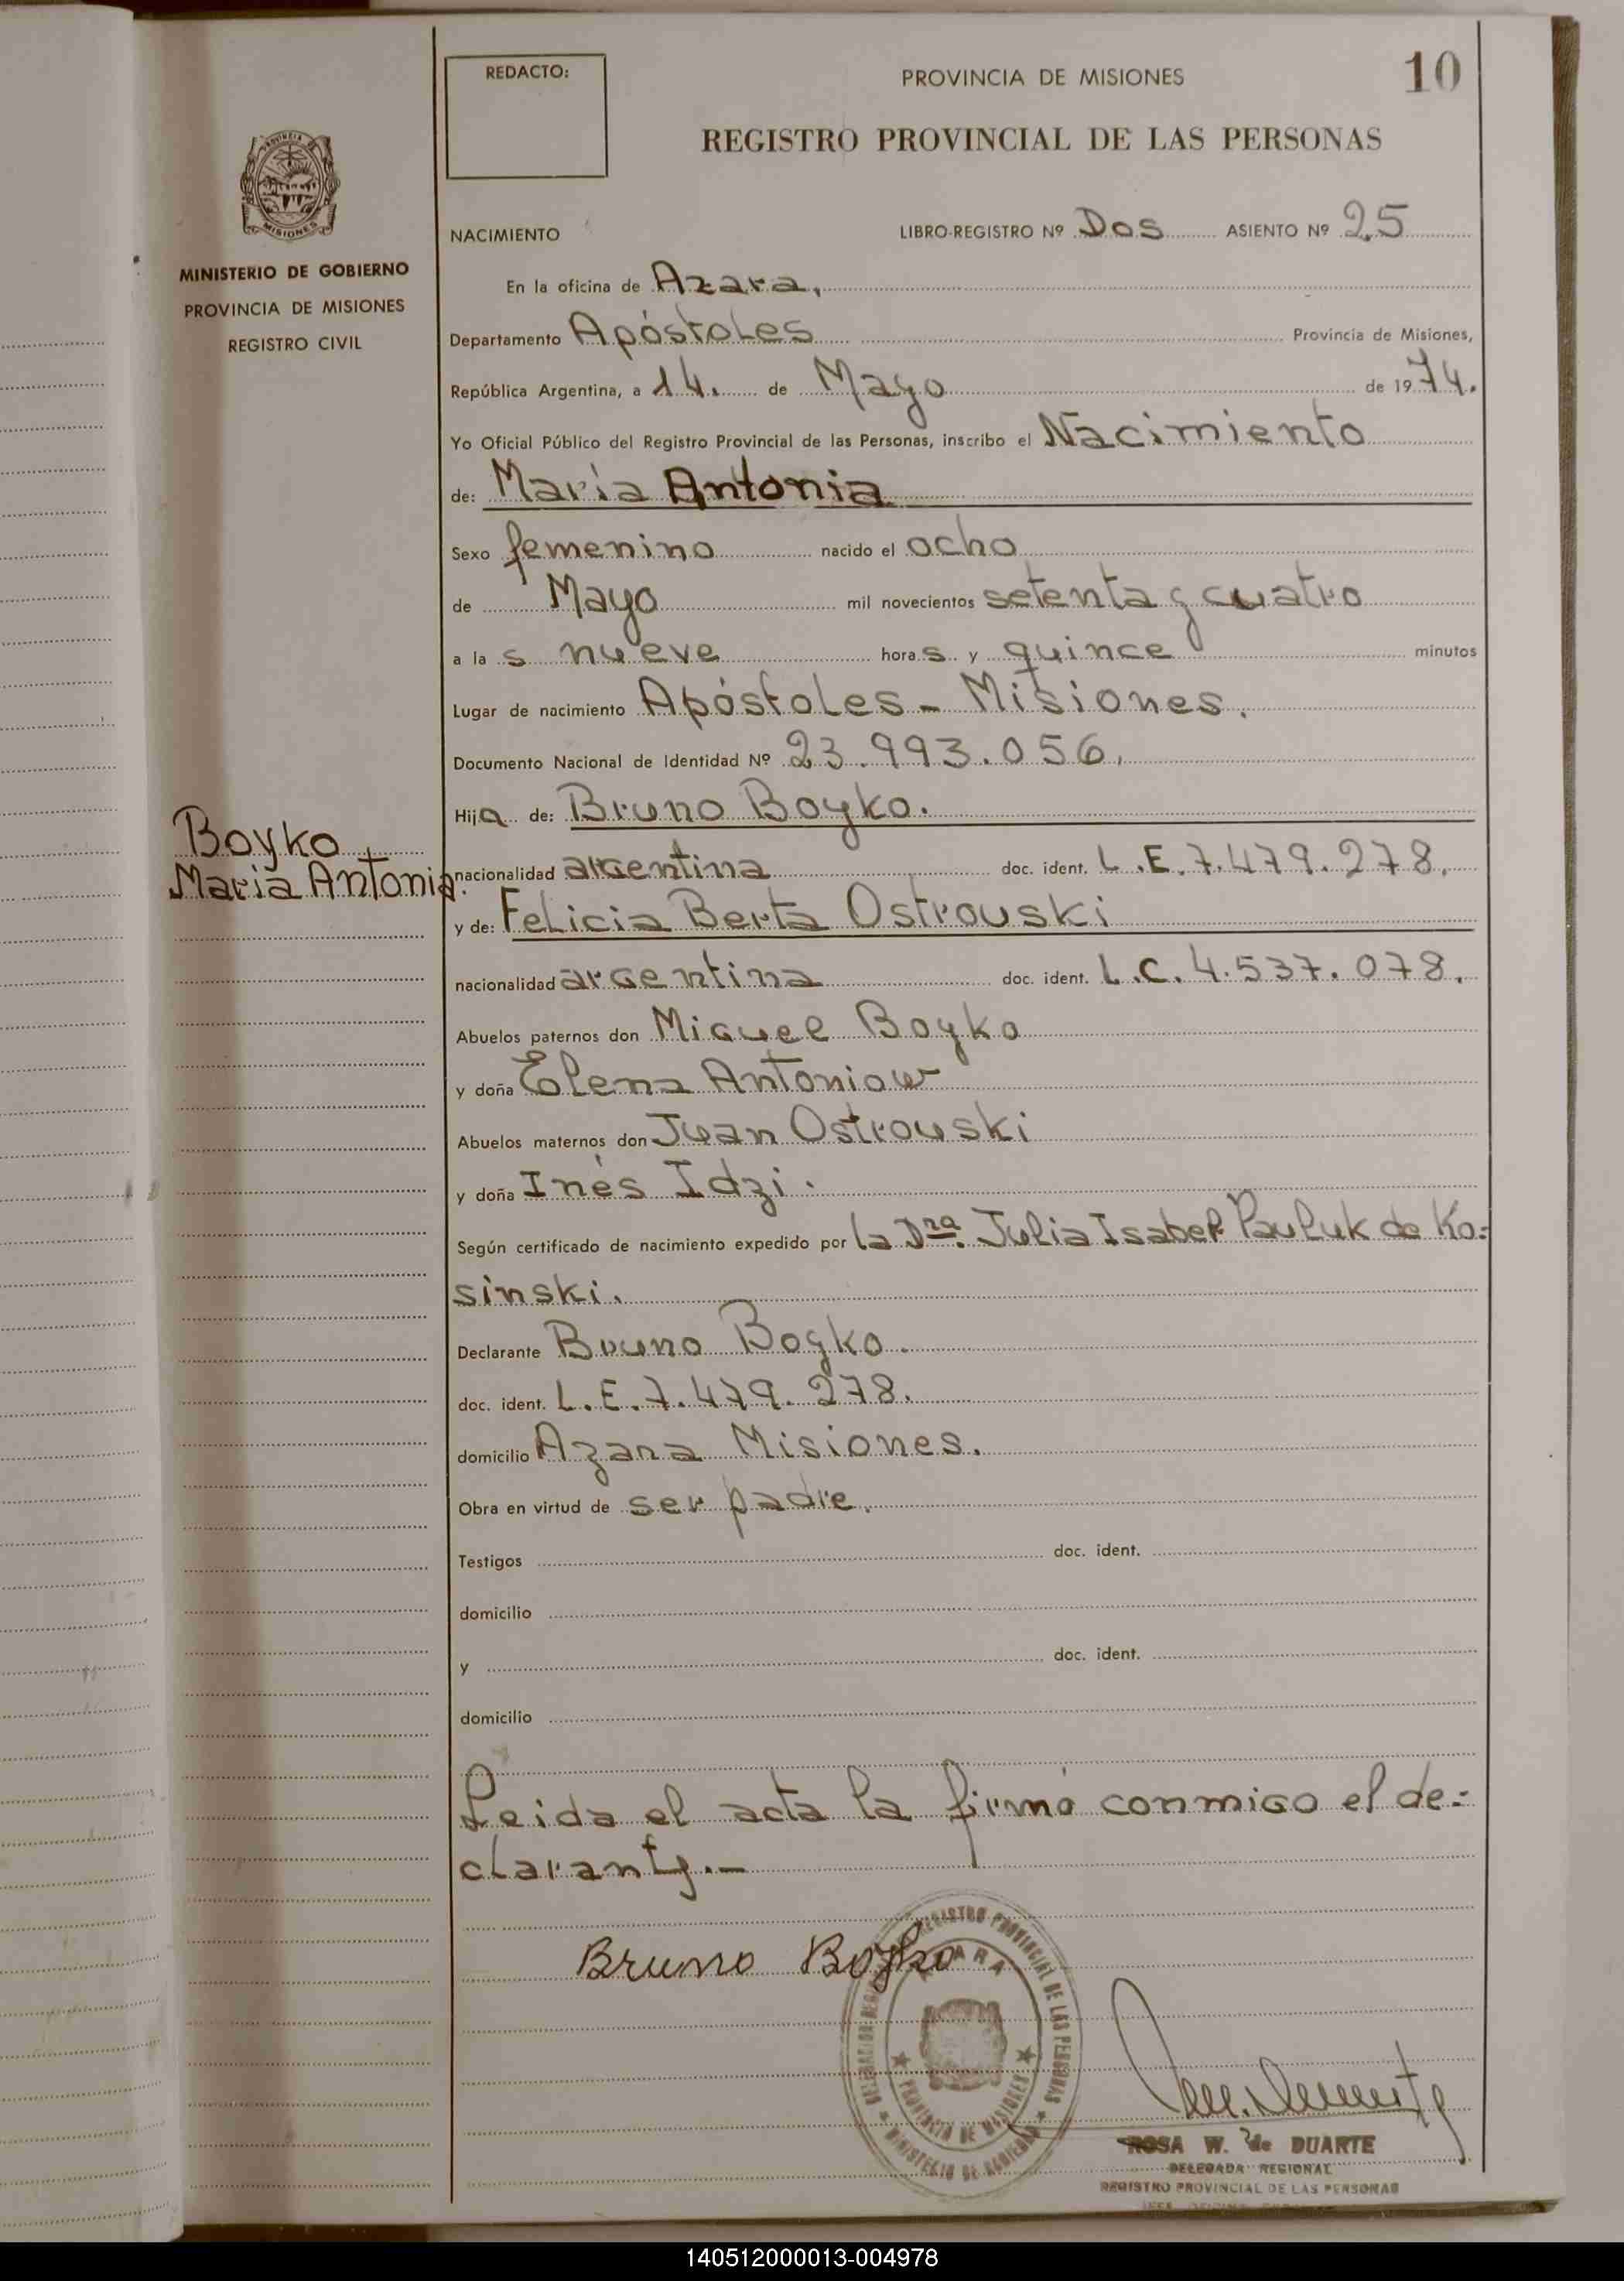 10
REDACTO:
PROVINCIA DE MISIONES
REGISTRO PROVINCIAL DE LAS PERSONAS
PROVINCIA
MISIONES
MINISTERIO DE GOBIERNO
PROVINCIA DE MISIONES
REGISTRO CIVIL
NACIMIENTO LIBRO-REGISTRO Nº Dos ASIENTO Nº 25
En la oficina de Azara,
Departamento Apóstoles Provincia de Misiones,
República Argentina, a 14. de Mayo de 1974.
Yo Oficial Público del Registro Provincial de las Personas, inscribo el Nacimiento
de: María Antonia
Sexo femenino nacido el ocho
de Mayo mil novecientos setenta y cuatro
a la s nueve hora s y quince minutos
Lugar de nacimiento Apóstoles - Misiones.
Documento Nacional de Identidad Nº 23.993.056,
Hija de: Bruno Boyko.
Boyko
Maria Antonia.
nacionalidad argentina doc. ident. L.E. 7.479.278.
y de: Felicia Berta Ostrouski
nacionalidad argentina doc. ident. L.C. 4.537.078.
Abuelos paternos don Miguel Boyko
y doña Elena Antoniow
Abuelos maternos don Juan Ostrouski
y doña Inés Idzi.
Según certificado de nacimiento expedido por la Dra. Julia Isabel Pauluk de Ko=
sinski.
Declarante Bruno Boyko.
doc. ident. L.E. 7.479.278.
domicilio Azara Misiones.
Obra en virtud de ser padre.
Testigos doc. ident.
domicilio
y doc. ident.
domicilio
Leida el acta la firmó conmigo el de=
clarante.-
Bruno Boyko
REGISTRO PROVINCIAL DE LAS PERSONAS
AZARA
PROVINCIA DE MISIONES
MINISTERIO DE GOBIERNO
ROSA W. de DUARTE
DELEGADA REGIONAL
REGISTRO PROVINCIAL DE LAS PERSONAS
140512000013-004978